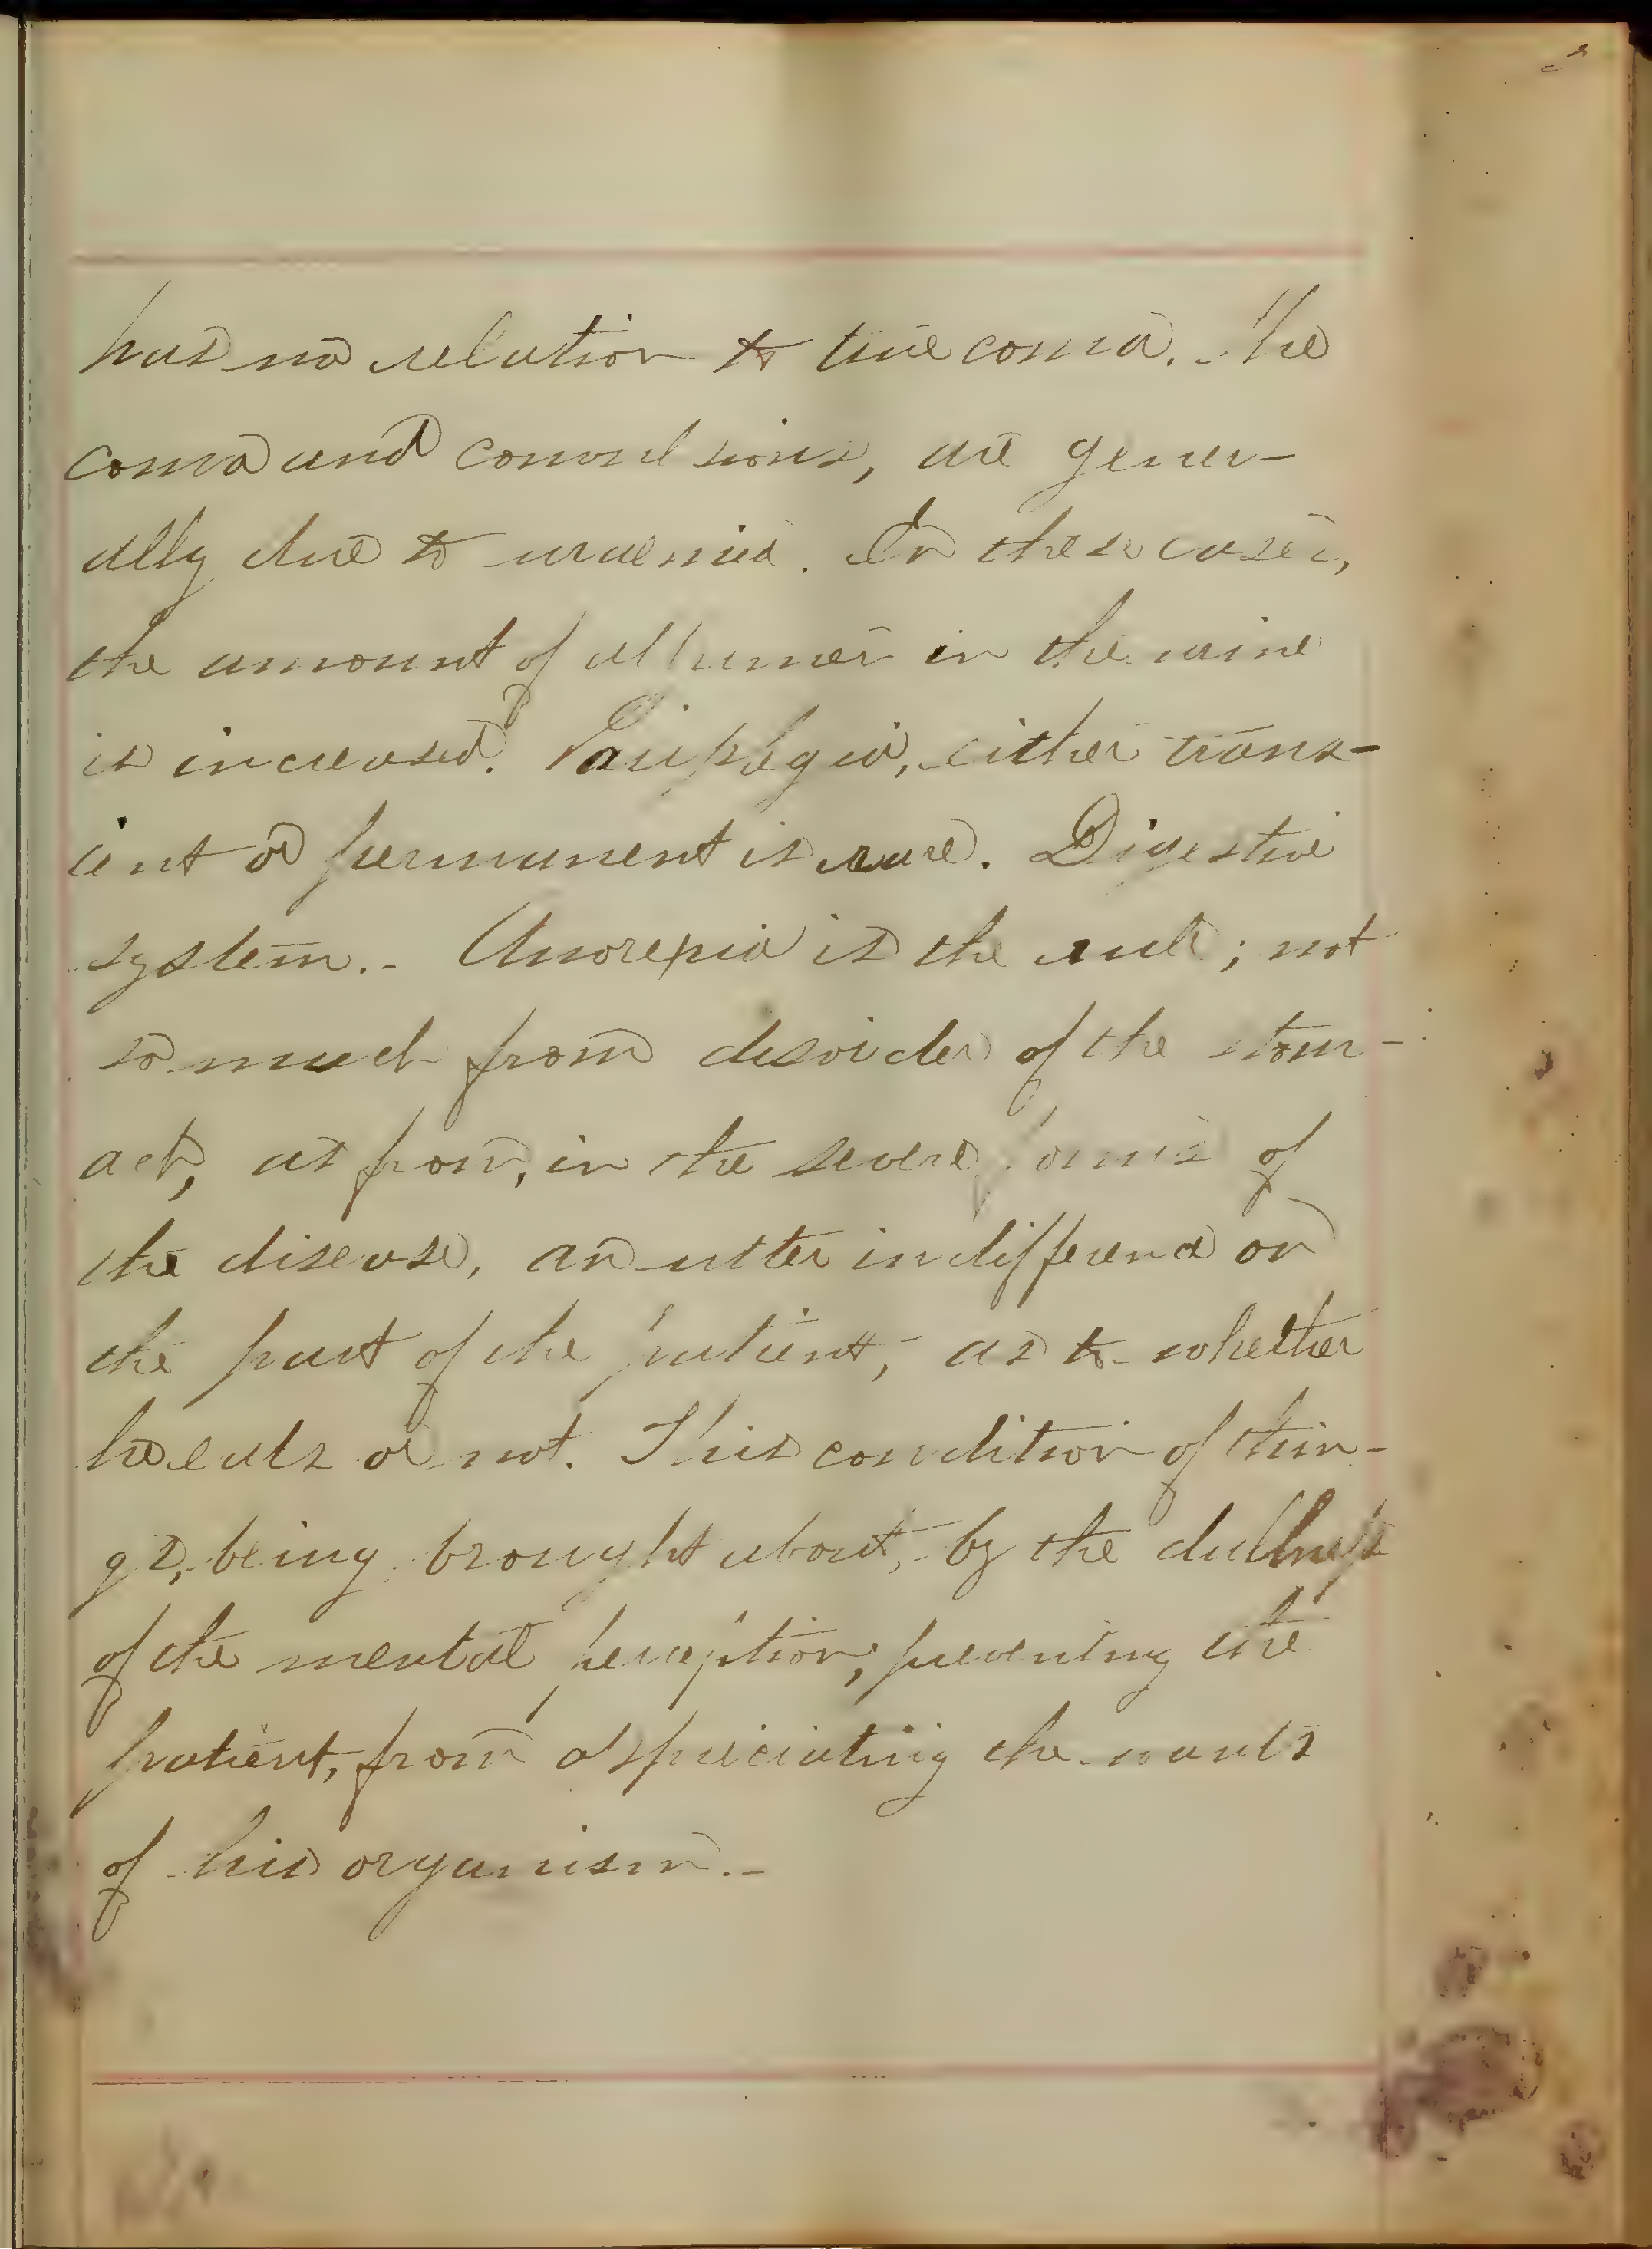 has no relation to true coma. The
coma and convulsions, are gener-
ally due to uraemia. In these cases,
the amount of albumen in the urine
is increased. Paraplegia, either trans-
ient or permanent is rare. Digestive
system.- Anorexia is the rule; not
so much from disorder of the stom-
ach, as from, in the severe forms of
the disease, an utter indifference on
the part of the patient, as to whether
he eats or not. This condition of thin-
gs, being brought about, by the dullness
of the mental perception, preventing the
patient, from appreciating the wants
of his organism.-